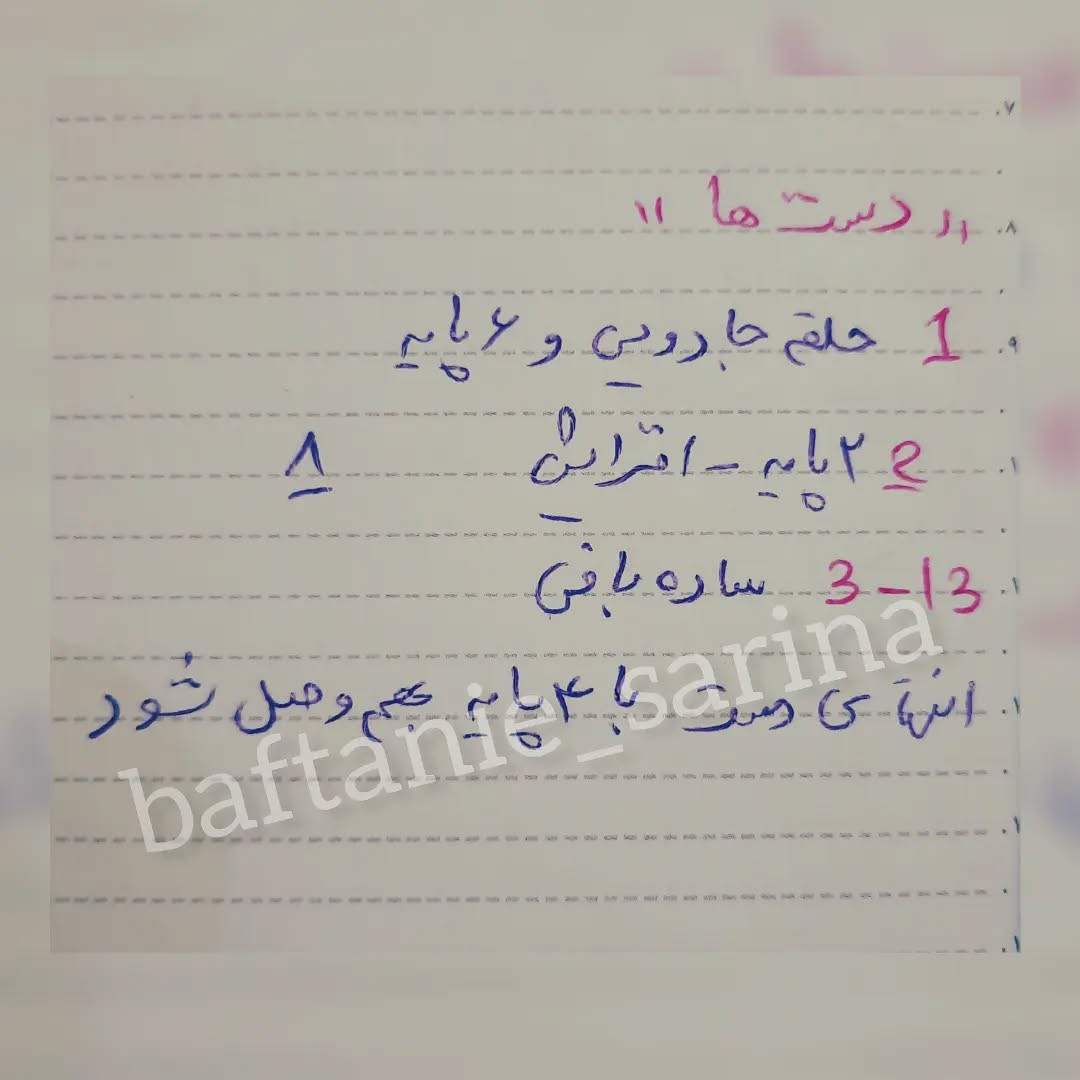 "دست ها"
1 حلقه جادویی و ۶ پایه
2 ۲ پایه - افزایش ۸
3-13 ساده بافی
انتهای دست با ۴ پایه بهم وصل شود
baftanie_sarina